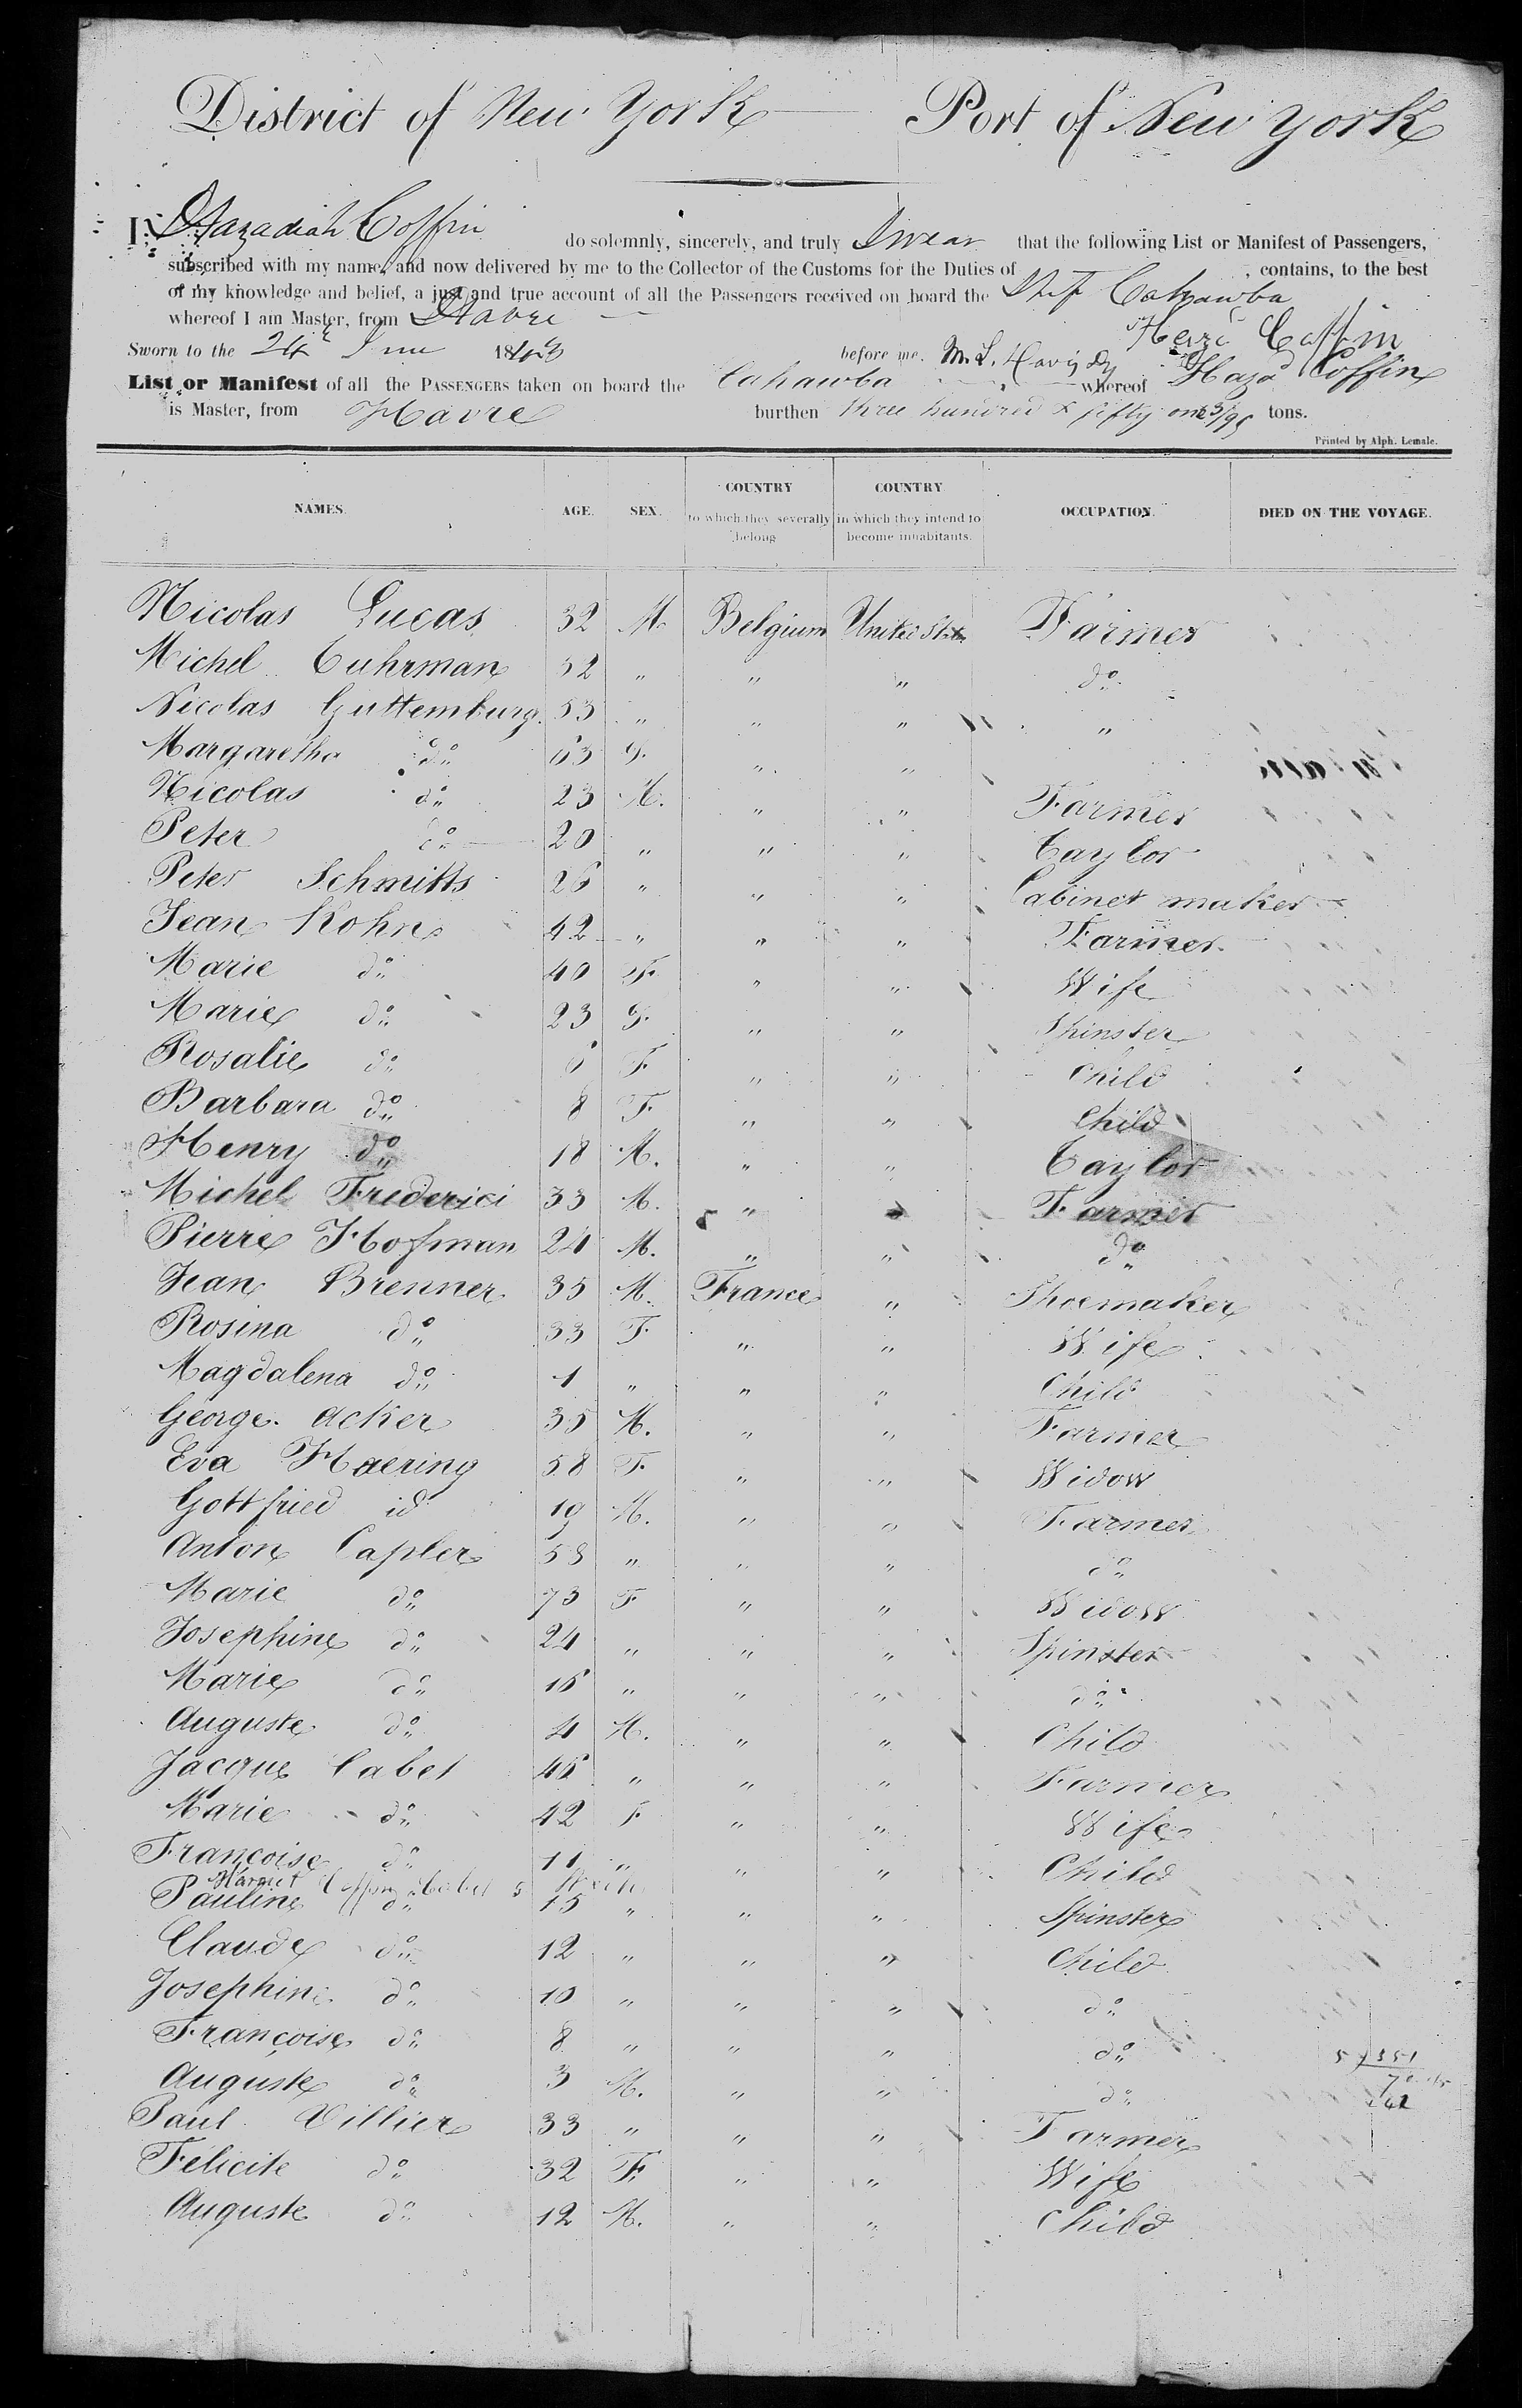 District of New York Port of New York
I, Hazadiah Coffin do solemnly, sincerely, and truly Swear that the following List or Manifest of Passengers,
subscribed with my name, and now delivered by me to the Collector of the Customs for the Duties of , contains, to the best
of my knowledge and belief, a just and true account of all the Passengers received on board the Ship Cahawba
whereof I am Master, from Havre
Hazd Coffin
Sworn to the 24 June 1843 before me.
List or Manifest of all the PASSENGERS taken on board the Cahawba whereof Hazd Coffin
is Master, from Havre burthen three hundred & fifty one 3/95 tons.
Printed by Alph. Lemale.
NAMES. AGE. SEX. COUNTRY to which they severally belong COUNTRY in which they intend to become inhabitants. OCCUPATION. DIED ON THE VOYAGE.
Nicolas Lucas 32 M. Belgium United States Farmer
Michel Cuhrman 52 " " " do
Nicolas Guttemburg. 53 " " " "
Margaretha do 63 F. " "
Nicolas do 23 M. " " Farmer
Peter do 20 " " " Taylor
Peter Schmitts 26 " " " Cabinet maker
Jean Kohn 42 " " " Farmer
Marie do 40 F. " " Wife
Marie do 23 F. " " Spinster
Rosalie do 6 F. " " Child
Barbara do 8 F. " " Child
Henry do 18 M. " " Taylor
Michel Frederici 33 M. " " Farmer
Pierre Hofman 24 M. " " do
Jean Brenner 35 M. France " Shoemaker
Rosina do 33 F. " " Wife
Magdalena do 1 " " " Child
George Acker 35 M. " " Farmer
Eva Haering 58 F. " " Widow
Gottfried id 19 M. " " Farmer
Anton Capler 58 " " " do
Marie do 73 F " " Widow
Josephine do 24 " " " Spinster
Marie do 16 " " " do
Auguste do 4 M. " " Child
Jacque Cabet 46 " " " Farmer
Marie do 42 F " " Wife
Françoise do 11 " " " Child
Harriet Coffin Cabet 5 Week
Pauline do 15 " " " Spinster
Claude do 12 " " " Child
Josephine do 10 " " " do
Françoise do 8 " " " do
Auguste do 3 M. " " do
5 ) 351
70
Paul Villier 33 " " " Farmer
Felicite do 32 F. " " Wife
Auguste do 12 M. " " Child